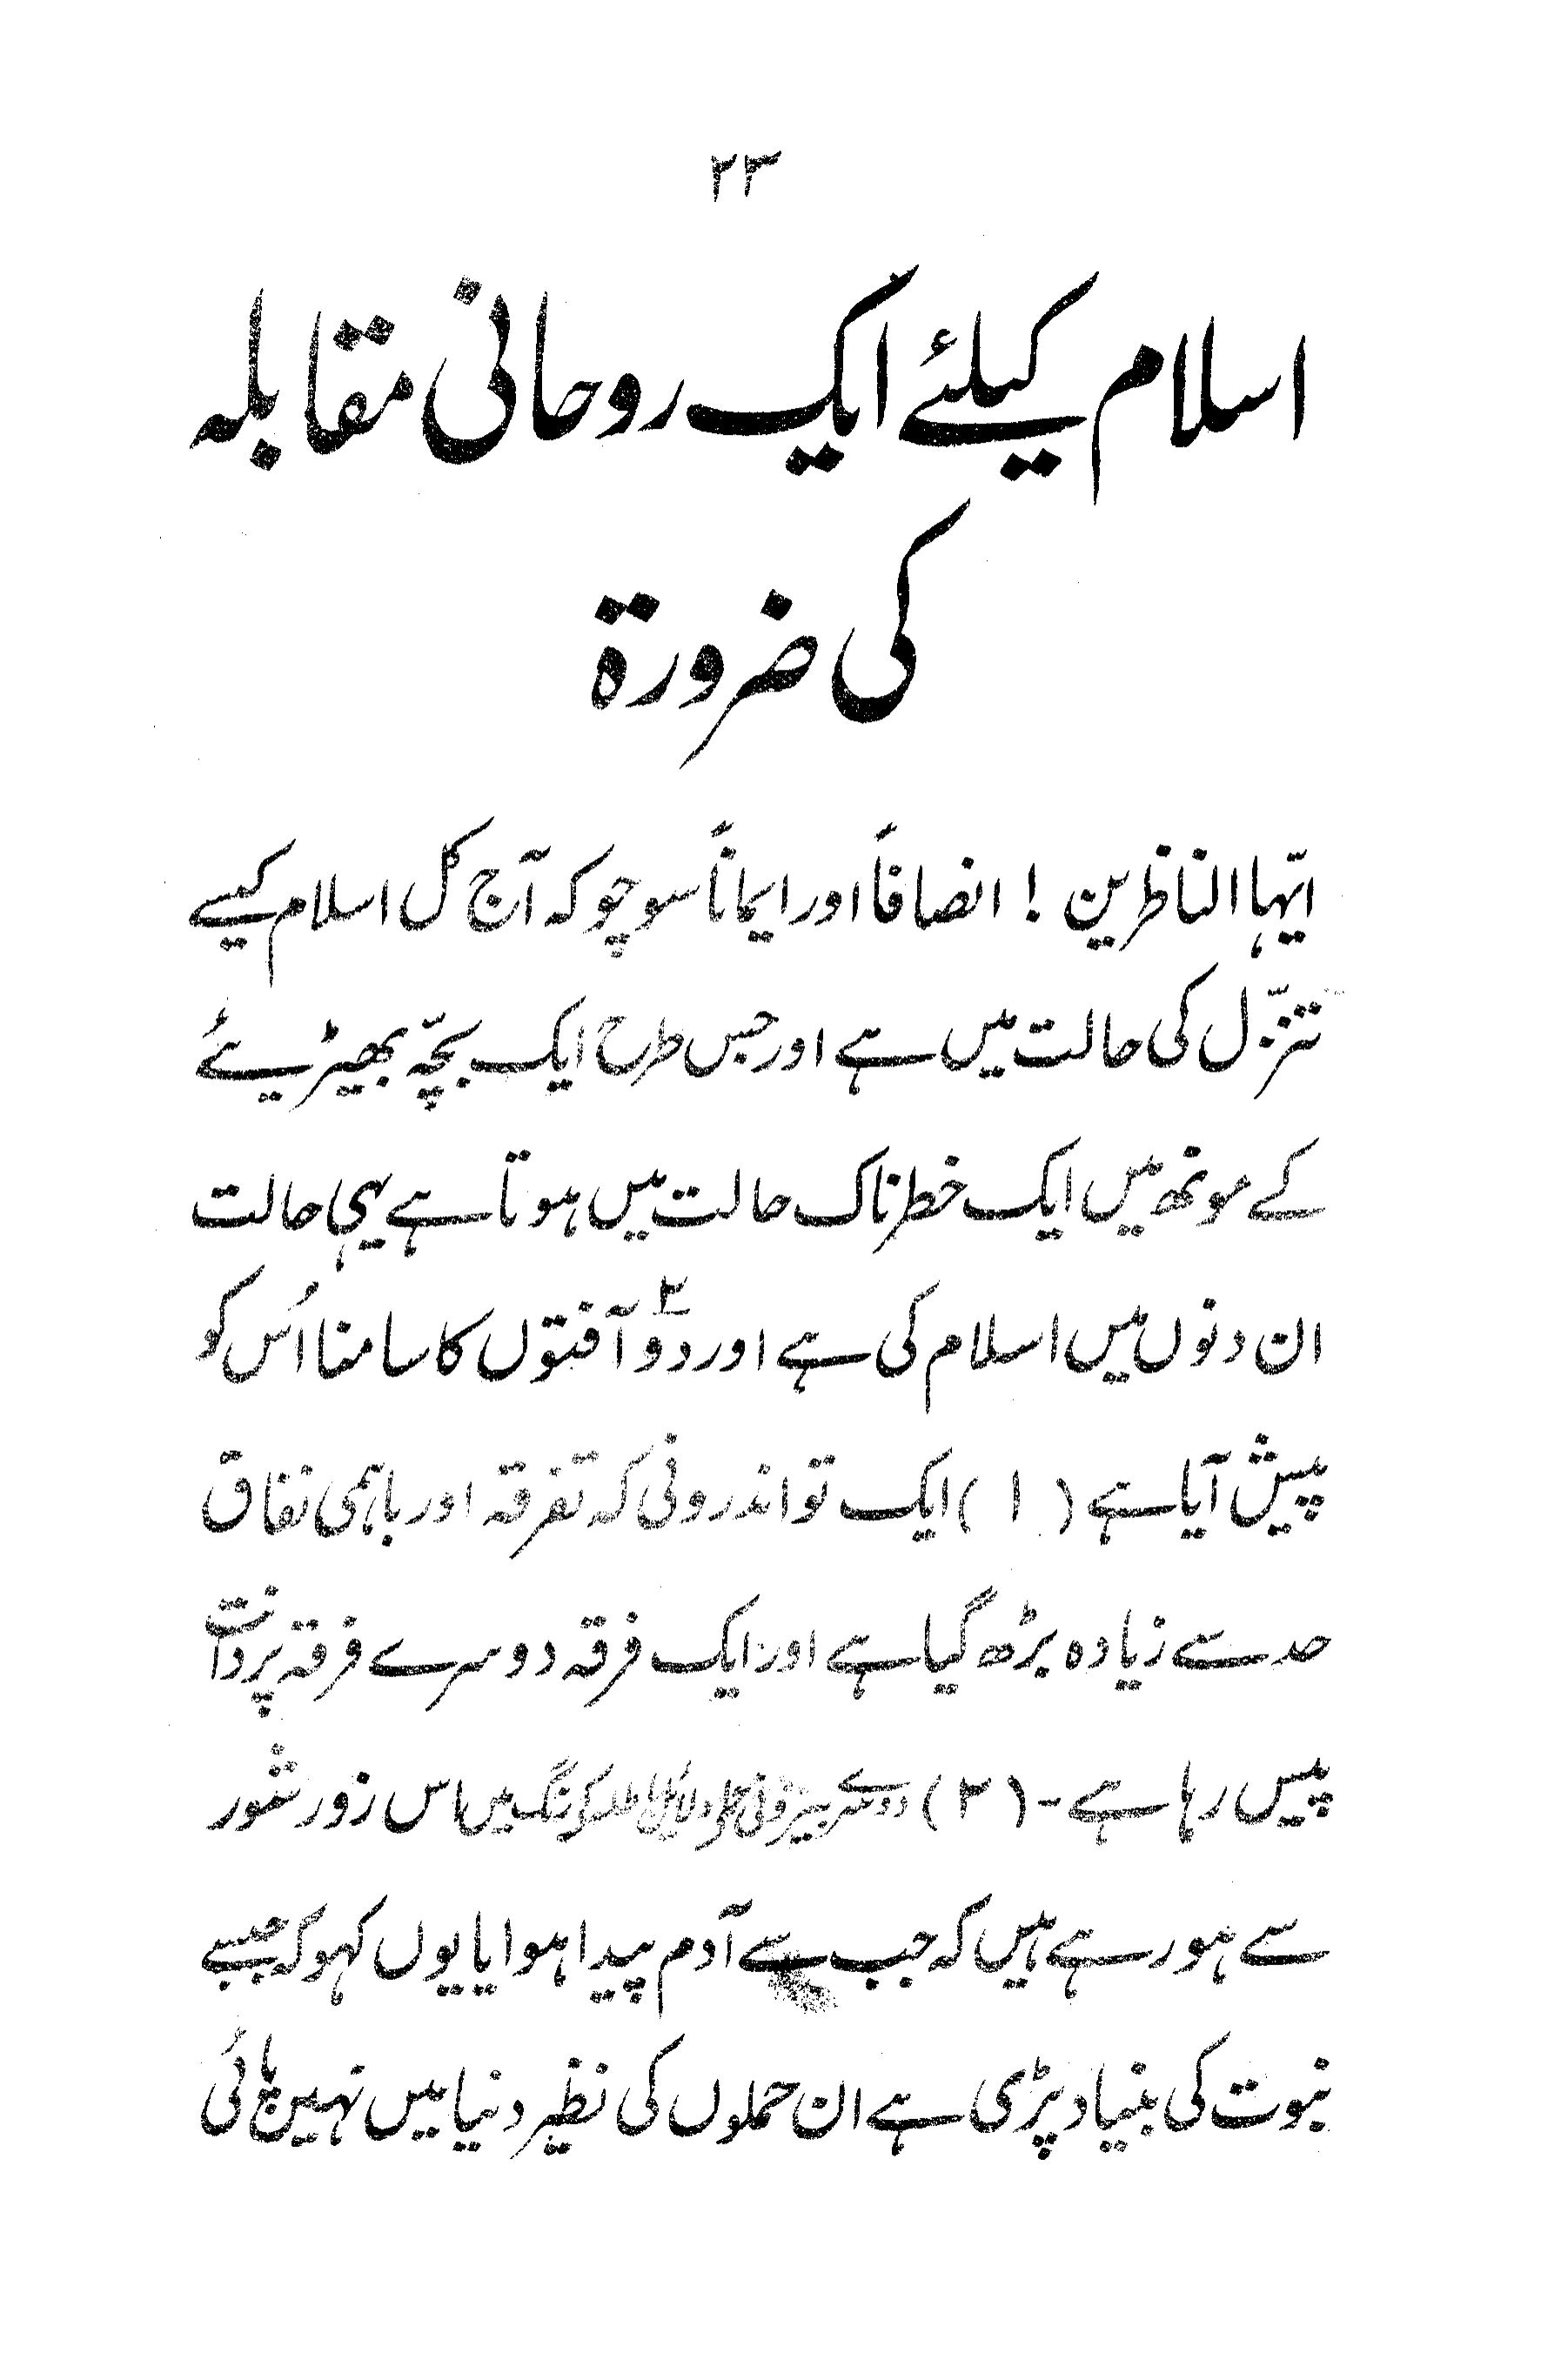 ۲۳
اسلام کیلئے ایک روحانی مقابلہ
کی ضرورۃ
ایّہا الناظرین ! انصافاً اور ایماناً سوچو کہ آج کل اسلام کیسے
تنزّل کی حالت میں ہے اور جس طرح ایک بچّہ بھیڑیئے
کے مونھ میں ایک خطرناک حالت میں ہوتا ہے یہی حالت
ان دنوں میں اسلام کی ہے اور دو۲ آفتوں کا سامنا اُس کو
پیش آیا ہے (۱) ایک تو اندرونی کہ تفرقہ اور باہمی نفاق
حد سے زیادہ بڑھ گیا ہے اور ایک فرقہ دوسرے فرقہ پر دانت
پیس رہا ہے - (۲) دوسرے بیرونی حملے دلائل باطلہ کے رنگ میں اس زور شور
سے ہو رہے ہیں کہ جب سے آدم پیدا ہوا یا یوں کہو کہ جب سے
نبوت کی بنیاد پڑی ہے ان حملوں کی نظیر دنیا میں نہیں پائی